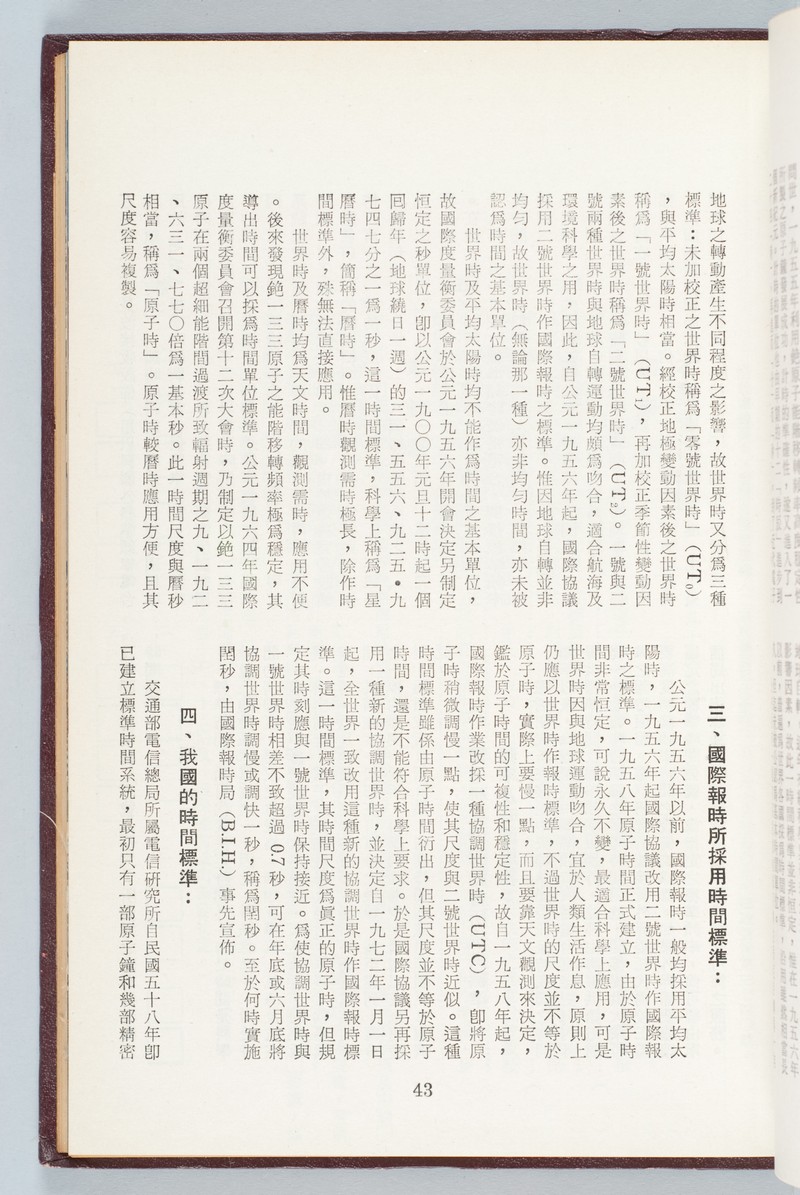 地球之轉動產生不同程度之影響，故世界時又分爲三種
標準：未加校正之世界時稱爲「零號世界時」（UT₀）
，與平均太陽時相當。經校正地極變動因素後之世界時
稱爲「一號世界時」（UT₁），再加校正季節性變動因
素後之世界時稱爲「二號世界時」（UT₂）。一號與二
號兩種世界時與地球自轉運動均頗爲吻合，適合航海及
環境科學之用，因此，自公元一九五六年起，國際協議
採用二號世界時作國際報時之標準。惟因地球自轉並非
均勻，故世界時（無論那一種）亦非均勻時間，亦未被
認爲時間之基本單位。
世界時及平均太陽時均不能作爲時間之基本單位，
故國際度量衡委員會於公元一九五六年開會決定另制定
恒定之秒單位，卽以公元一九〇〇年元旦十二時起一個
回歸年（地球繞日一週）的三一、五五六、九二五•九
七四七分之一爲一秒，這一時間標準，科學上稱爲「星
曆時」，簡稱「曆時」。惟曆時觀測需時極長，除作時
間標準外，殊無法直接應用。
世界時及曆時均爲天文時間，觀測需時，應用不便
。後來發現銫一三三原子之能階移轉頻率極爲穩定，其
導出時間可以採爲時間單位標準。公元一九六四年國際
度量衡委員會召開第十二次大會時，乃制定以銫一三三
原子在兩個超細能階間過渡所致輻射週期之九、一九二
、六三一、七七〇倍爲一基本秒。此一時間尺度與曆秒
相當，稱爲「原子時」。原子時較曆時應用方便，且其
尺度容易複製。
三、國際報時所採用時間標準：
公元一九五六年以前，國際報時一般均採用平均太
陽時，一九五六年起國際協議改用二號世界時作國際報
時之標準。一九五八年原子時間正式建立，由於原子時
間非常恒定，可說永久不變，最適合科學上應用，可是
世界時因與地球運動吻合，宜於人類生活作息，原則上
仍應以世界時作報時標準，不過世界時的尺度並不等於
原子時，實際上要慢一點，而且要靠天文觀測來決定，
鑑於原子時間的可複性和穩定性，故自一九五八年起，
國際報時作業改採一種協調世界時（UTC），卽將原
子時稍微調慢一點，使其尺度與二號世界時近似。這種
時間標準雖係由原子時間衍出，但其尺度並不等於原子
時間，還是不能符合科學上要求。於是國際協議另再採
用一種新的協調世界時，並決定自一九七二年一月一日
起，全世界一致改用這種新的協調世界時作國際報時標
準。這一時間標準，其時間尺度爲眞正的原子時，但規
定其時刻應與一號世界時保持接近。爲使協調世界時與
一號世界時相差不致超過0.7秒，可在年底或六月底將
協調世界時調慢或調快一秒，稱爲閏秒。至於何時實施
閏秒，由國際報時局（B.I.H.）事先宣佈。
四、我國的時間標準：
交通部電信總局所屬電信研究所自民國五十八年卽
已建立標準時間系統，最初只有一部原子鐘和幾部精密
43